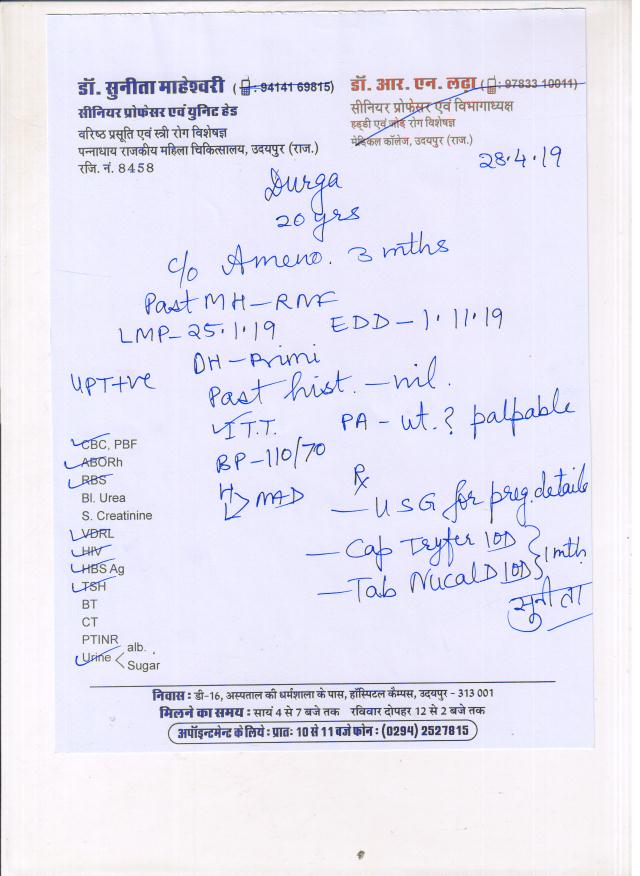 डॉ. सुनीता माहेश्वरी (: 94141 69815)
सीनियर प्रोफेसर एवं यूनिट हेड
वरिष्ठ प्रसूति एवं स्त्री रोग विशेषज्ञ
पन्नाधाय राजकीय महिला चिकित्सालय, उदयपुर (राज.)
रजि. नं. 8458
डॉ. आर. एन. लढ़ा (: 97833 10011)
सीनियर प्रोफेसर एवं विभागाध्यक्ष
हड्डी एवं जोड़ रोग विशेषज्ञ
मेडिकल कॉलेज, उदयपुर (राज.)
28.4.19
Durga
20 yrs
c/o Ameno. 3 mths
Past MH - RNF
LMP - 25.1.19 EDD - 1.11.19
OH - Primi
UPT+ve
Past hist. - nil.
I T.T. PA - ut. ? palpable
BP - 110/70
H
L > NAD
CBC, PBF
ABORh
RBS
Bl. Urea
S. Creatinine
VDRL
HIV
HBS Ag
TSH
BT
CT
PTINR
Urine < alb.
Sugar
Rx
- USG for preg. details
- Cap Tryfer 1OD
- Tab Nucal D 1OD } 1 mth
सुनीता
निवास : डी-16, अस्पताल की धर्मशाला के पास, हॉस्पिटल कैम्पस, उदयपुर - 313 001
मिलने का समय : सायं 4 से 7 बजे तक रविवार दोपहर 12 से 2 बजे तक
अपॉइन्टमेन्ट के लिये : प्रातः 10 से 11 बजे फोन : (0294) 2527815